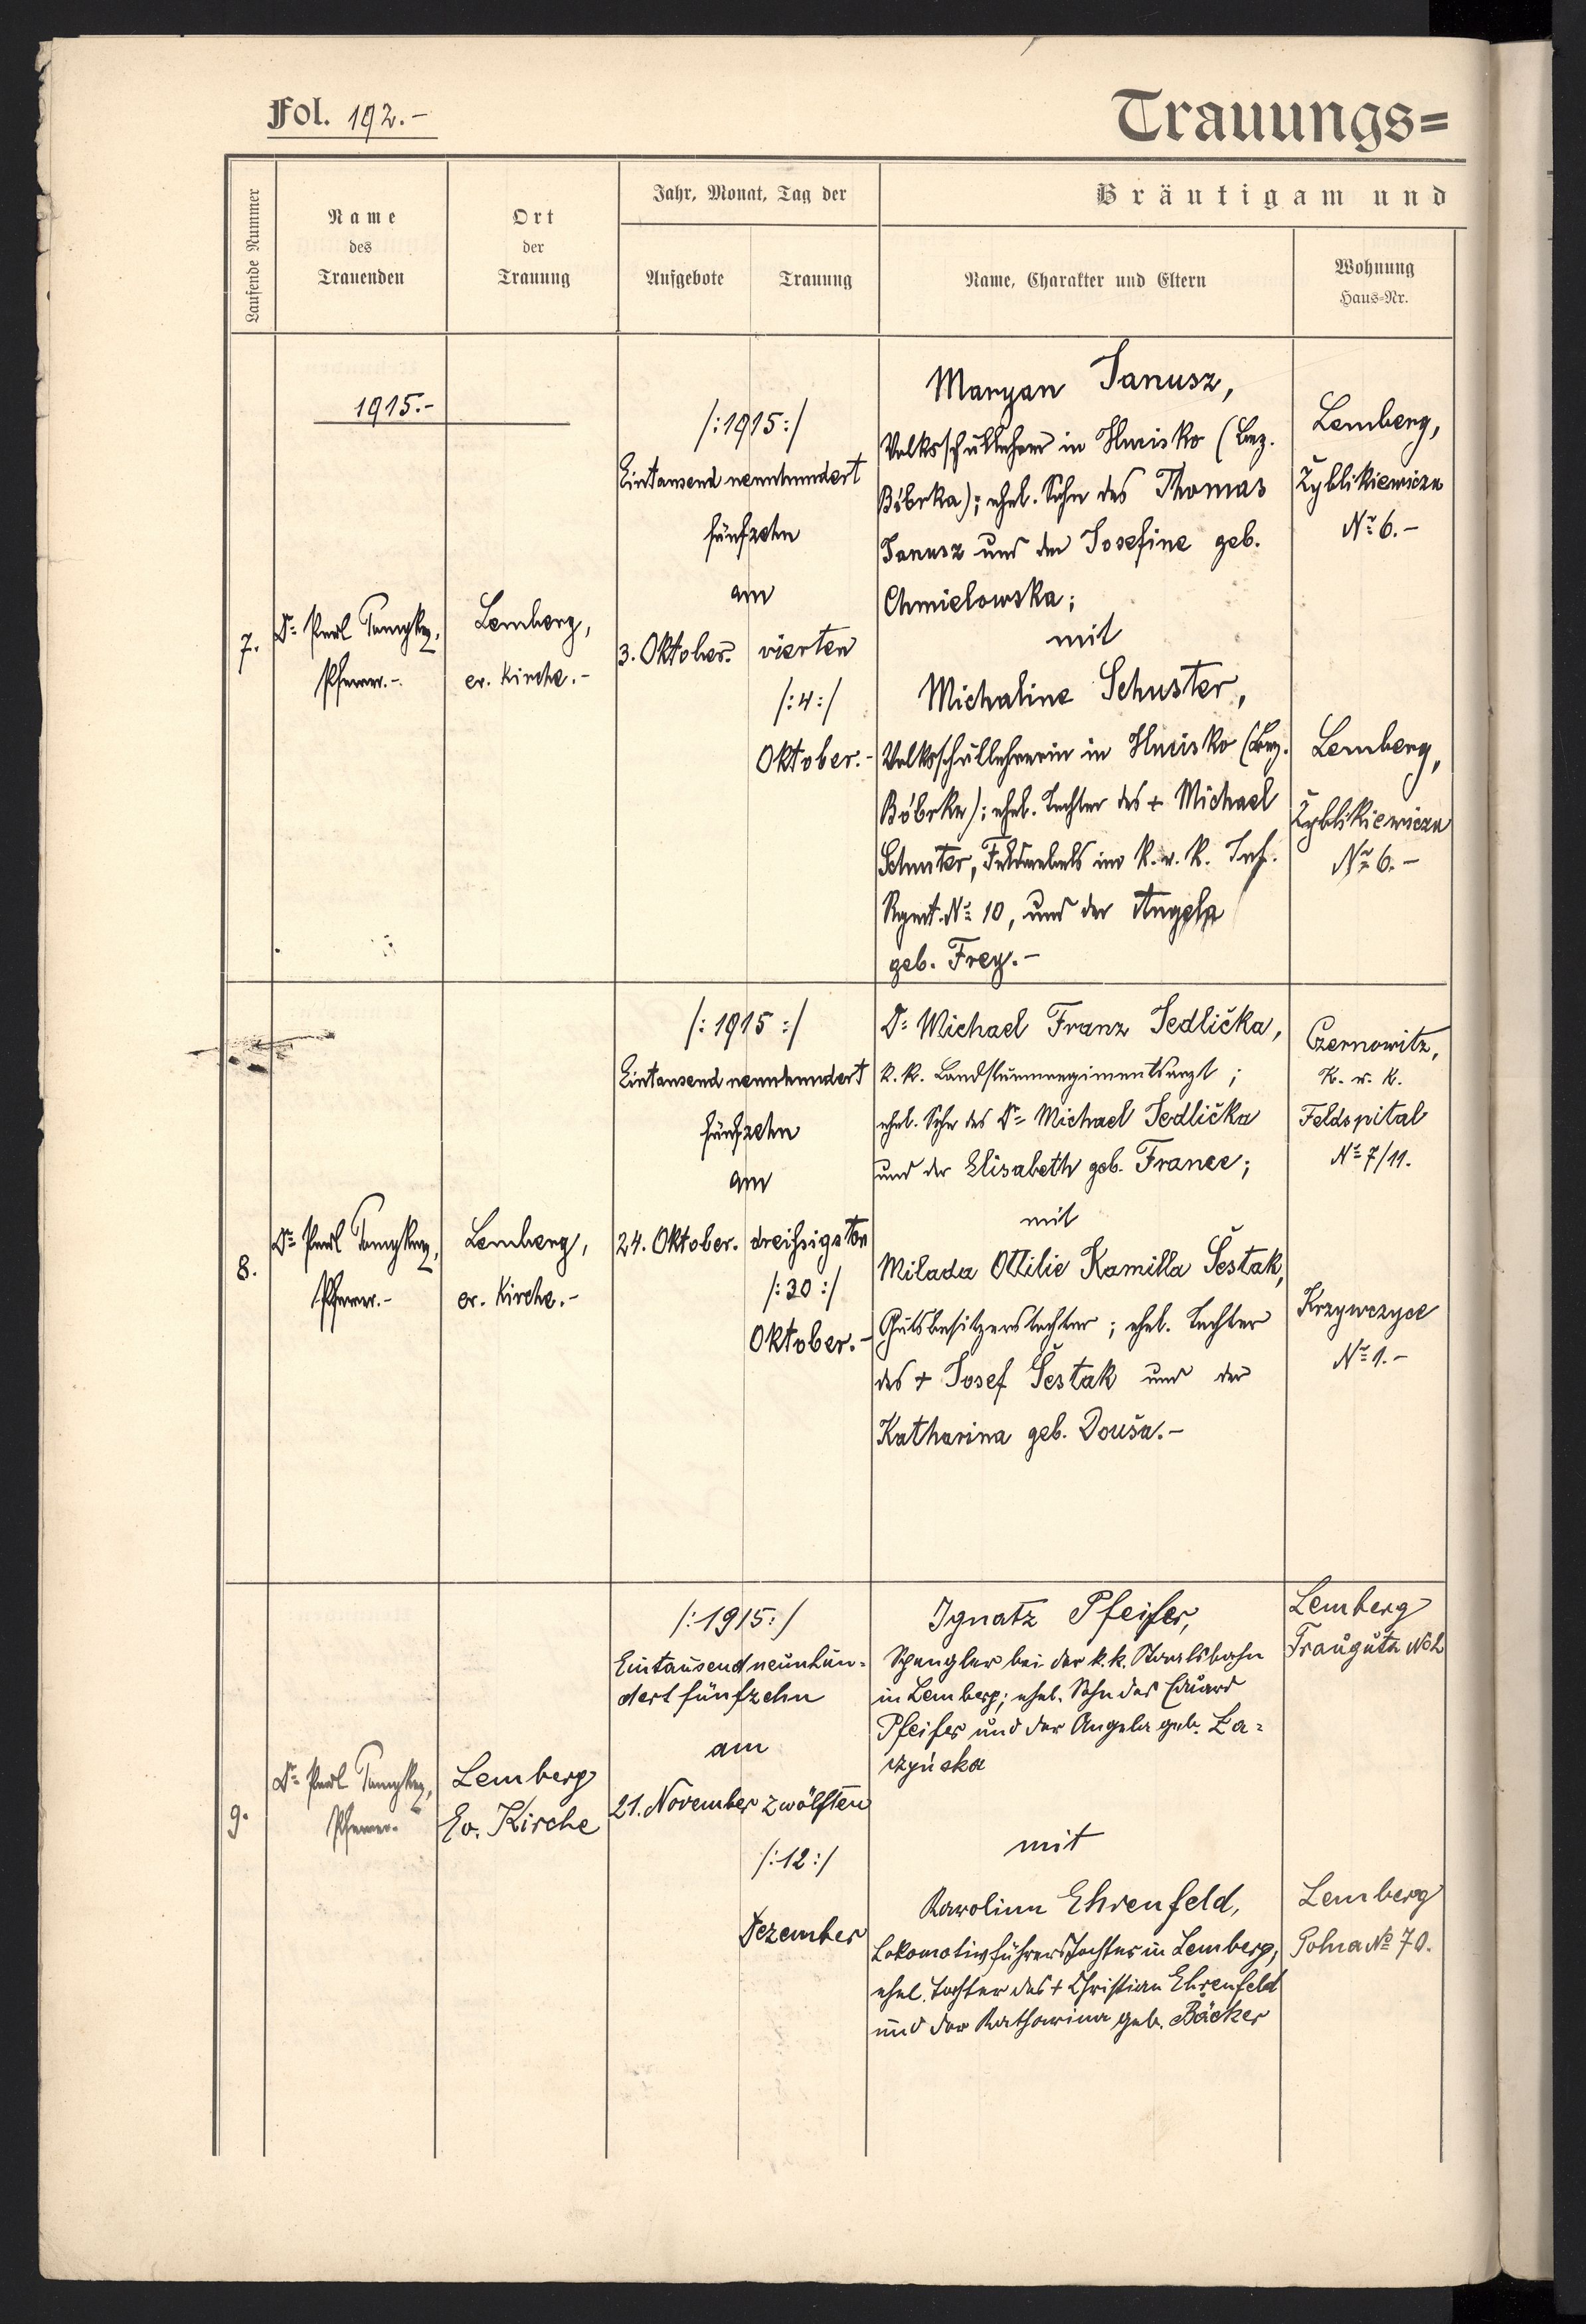 Fol. 192.-
Trauungs=
Laufende Nummer
Name
des
Trauenden
Ort
der
Trauung
Jahr, Monat, Tag der
Aufgebote
Trauung
Bräutigam und
Name, Charakter und Eltern
Wohnung
Haus-Nr.
1915.-
7.
Dr. Paul
Pfarrer.-
Lemberg,
ev. Kirche.-
/:1915:/
Eintausend neunhundert
fünfzehn
am
3. Oktober.
vierten
/:4:/
Oktober.-
Maryan Janusz,
Volksschullehrer in Hucisko (Bez.
Bóbrka); ehel. Sohn des Thomas
Janusz und der Josefine geb.
Chmielowska;
mit
Michaline Schuster,
Volksschullehrerin in Hucisko (Bez.
Bóbrka); ehel. Tochter des + Michael
Schuster, Feldwebels im k. u. k. Inf.
Rgmt. No 10, und der Angela
geb. Frey.-
Lemberg,
Zyblikiewicza
No 6.-
Lemberg,
Zyblikiewicza
No 6.-
8.
Dr. Paul
Pfarrer.-
Lemberg,
ev. Kirche.-
/:1915:/
Eintausend neunhundert
fünfzehn
am
24. Oktober.
dreißigsten
/:30:/
Oktober.-
Dr. Michael Franz Jedlička,
k. k. Landsturmregimentsarzt;
ehel. Sohn des Dr. Michael Jedlička
und der Elisabeth geb. France;
mit
Milada Ottilie Kamilla Šestak,
Gutsbesitzerstochter; ehel. Tochter
des + Josef Šestak und der
Katharina geb. Douša.-
Czernowitz,
K. u. K.
Feldspital
No 7/11.
Krzywczyce
No 1.-
9.
Dr. Paul
Pfarrer.-
Lemberg
Ev. Kirche
/:1915:/
Eintausend neunhun-
dert fünfzehn
am
21. November
zwölften
/:12:/
Dezember
Ignatz Pfeifer,
Spengler bei der k.k. Staatsbahn
in Lemberg; ehel. Sohn des Eduard
Pfeifer und der Angela geb. Ła-
szyńska
mit
Karolina Ehrenfeld,
Lokomotivführerstochter in Lemberg,
ehel. Tochter des + Christian Ehrenfeld
und der Katharina geb. Bäcker
Lemberg
Trauguta No 2
Lemberg
Polna No 70.